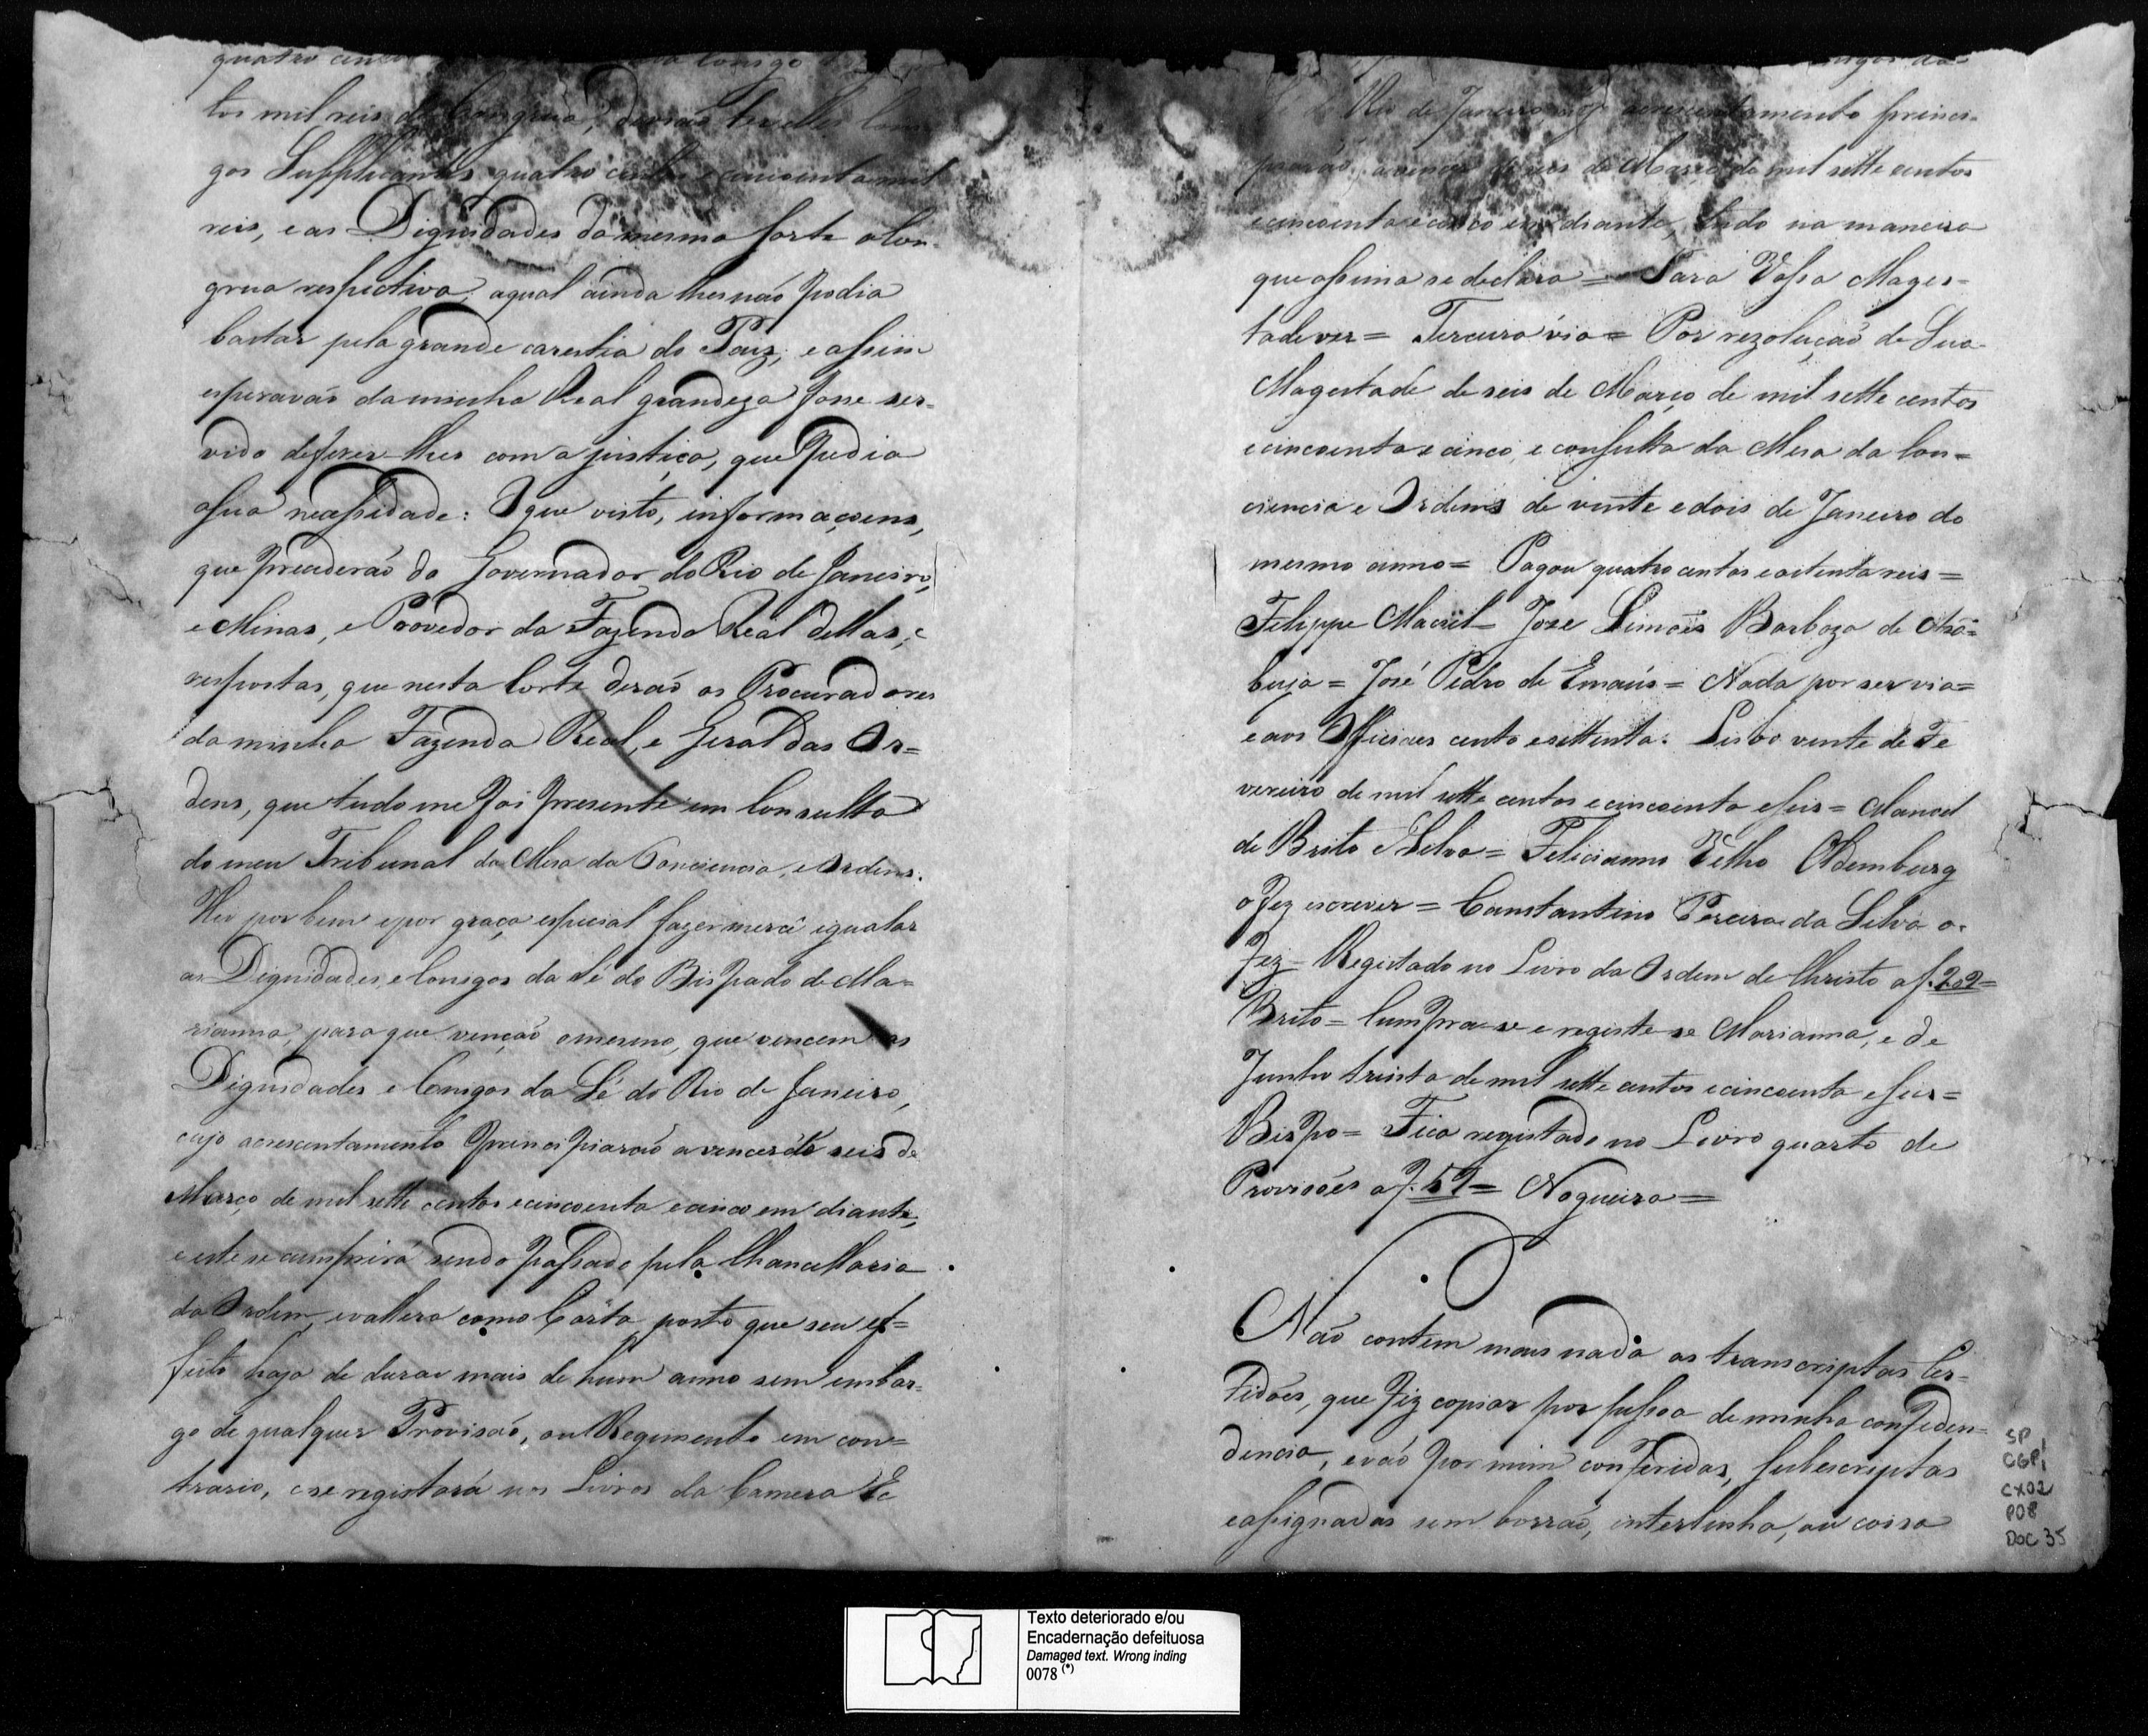 quatro
tos mil reis de Congrua,
gos Supplicantes quatro centos e cincoenta mil
reis, e as Dignidades da mesma sorte a Con-
grua respectiva, a qual ainda lhes não podia
bastar pela grande carestia do Paiz, e assim
esperavão da minha Real grandeza fosse ser-
vido deferir-lhes com a justiça, que pedia
a sua necessidade: O que visto, informaçoens,
que precederão do Governador do Rio de Janeiro,
e Minas, e Provedor da Fazenda Real dellas, e
respostas, que nesta Corte derão os Procuradores
da minha Fazenda Real, e Geral das Or=
dens, que tudo me foi presente em Consulta
do meu Tribunal da Mesa da Conciencia, e Ordens.
Hei por bem e por graça especial fazer mercê igualar
as Dignidades, e Conigos da Sé do Bispado de Ma=
rianna, para que venção o mesmo, que vencem as
Dignidades e Conigos da Sé do Rio de Janeiro,
cujo acrescentamento principiarão a vencer de seis de
Março de mil sette centos e cincoenta e cinco em diante,
e este se cumprirá sendo passado pela Chancellaria
da Ordem, e vallera como Carta posto que seu ef=
feito haja de durar mais de hum anno sem embar=
go de qualquer Provisão, ou Regimento em con=
trario, e se registará nos Livros da Camera Ec
do Rio de Janeiro acrescentamento princi-
piarão a vencer de seis de Março de mil sette centos
e cincoenta e cinco em diante, tudo na maneira
que assima se declara = Para Vossa Mages-
tade ver = Terceira via = Por rezolução de Sua
Magestade de seis de Março de mil sette centos
e cincoenta e cinco, e consulta da Mesa da Con=
ciencia e Ordens de vinte e dois de Janeiro do
mesmo anno = Pagou quatro centos e oitenta reis =
Filippe Maciel = Jose Simões Barboza de
buja = José Pedro de Emaús = Nada por ser via =
e aos Officiaes cento e settenta. Lisboa vinte de Fe
vereiro de mil sette centos e cincoenta e seis = Manoel
de Brito e Silva = Felicianno Velho Oldemburg
o fez escrever = Constantino Pereira da Silva o
fez = Registado no Livro da Ordem de Christo a f. 202 =
Brito = Cumpra-se e registe-se Marianna, e de
Junho trinta de mil sette centos e cincoenta e seis =
Bispo = Fica registado no Livro quarto de
Provisões a f. 52 = Nogueira =
Não contem mais nada as transcriptas Cer-
tidões, que fiz copiar por pessoa de minha confiden-
dencia, e vão por mim conferidas, subescriptas
e assignadas sem borrão, interlinha, ou coisa
SP
CGP1
CX02
P08
DOC 35
Texto deteriorado e/ou
Encadernação defeituosa
Damaged text. Wrong inding
0078 (*)